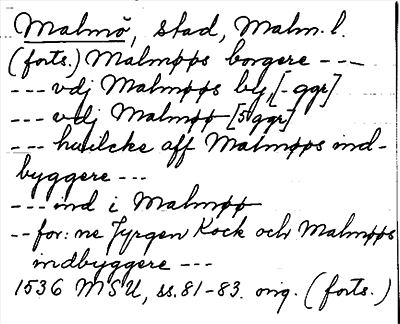 Malmö, stad, Malm. l.
(forts.) Malmøps borgere ---
--- vdj Malmøps by, [- ggr]
--- vdj Malmøø [5 ggr]
--- huilcke aff Malmøps ind-
byggere ---
--- ind i Malmøø
-- for: ne Jyrgen Kock och Malmøps
indbyggere ---
1536 MSU, ss. 81-83. orig. (forts.)